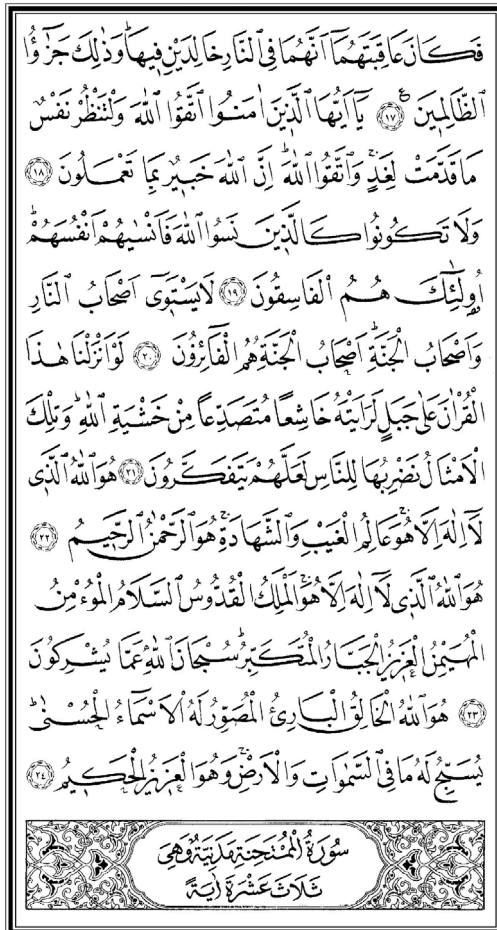 فَكَانَ عَاقِبَتَهُمَٓا اَنَّهُمَا فِى النَّارِ خَالِدَيْنِ فٖيهَاؕ وَذٰلِكَ جَزٰٓؤُا
الظَّالِمٖينَ ࣖ ﴿١٧﴾ يَٓا اَيُّهَا الَّذٖينَ اٰمَنُوا اتَّقُوا اللّٰهَ وَلْتَنْظُرْ نَفْسٌ
مَا قَدَّمَتْ لِغَدٍۚ وَاتَّقُوا اللّٰهَؕ اِنَّ اللّٰهَ خَبٖيرٌ بِمَا تَعْمَلُونَ ﴿١٨﴾
وَلَا تَكُونُوا كَالَّذٖينَ نَسُوا اللّٰهَ فَاَنْسٰيهُمْ اَنْفُسَهُمْؕ
اُو۬لٰٓئِكَ هُمُ الْفَاسِقُونَ ﴿١٩﴾ لَا يَسْتَوٖٓى اَصْحَابُ النَّارِ
وَاَصْحَابُ الْجَنَّةِؕ اَصْحَابُ الْجَنَّةِ هُمُ الْفَٓائِزُونَ ﴿٢٠﴾ لَوْ اَنْزَلْنَا هٰذَا
الْقُرْاٰنَ عَلٰى جَبَلٍ لَرَاَيْتَهُ خَاشِعًا مُتَصَدِّعًا مِنْ خَشْيَةِ اللّٰهِؕ وَتِلْكَ
الْاَمْثَالُ نَضْرِبُهَا لِلنَّاسِ لَعَلَّهُمْ يَتَفَكَّرُونَ ﴿٢١﴾ هُوَ اللّٰهُ الَّذٖى
لَٓا اِلٰهَ اِلَّا هُوَۚ عَالِمُ الْغَيْبِ وَالشَّهَادَةِۚ هُوَ الرَّحْمٰنُ الرَّحٖيمُ ﴿٢٢﴾
هُوَ اللّٰهُ الَّذٖى لَٓا اِلٰهَ اِلَّا هُوَۚ اَلْمَلِكُ الْقُدُّوسُ السَّلَامُ الْمُؤْمِنُ
الْمُهَيْمِنُ الْعَزٖيزُ الْجَبَّارُ الْمُتَكَبِّرُؕ سُبْحَانَ اللّٰهِ عَمَّا يُشْرِكُونَ
﴿٢٣﴾ هُوَ اللّٰهُ الْخَالِقُ الْبَارِئُ الْمُصَوِّرُ لَهُ الْاَسْمَٓاءُ الْحُسْنٰىؕ
يُسَبِّحُ لَهُ مَا فِى السَّمٰوَاتِ وَالْاَرْضِۚ وَهُوَ الْعَزٖيزُ الْحَكٖيمُ ﴿٢٤﴾
سُورَةُ الْمُمْتَحِنَةِ مَدَنِيَّةٌ وَهِىَ
ثَلَاثَ عَشْرَةَ اٰيَةً